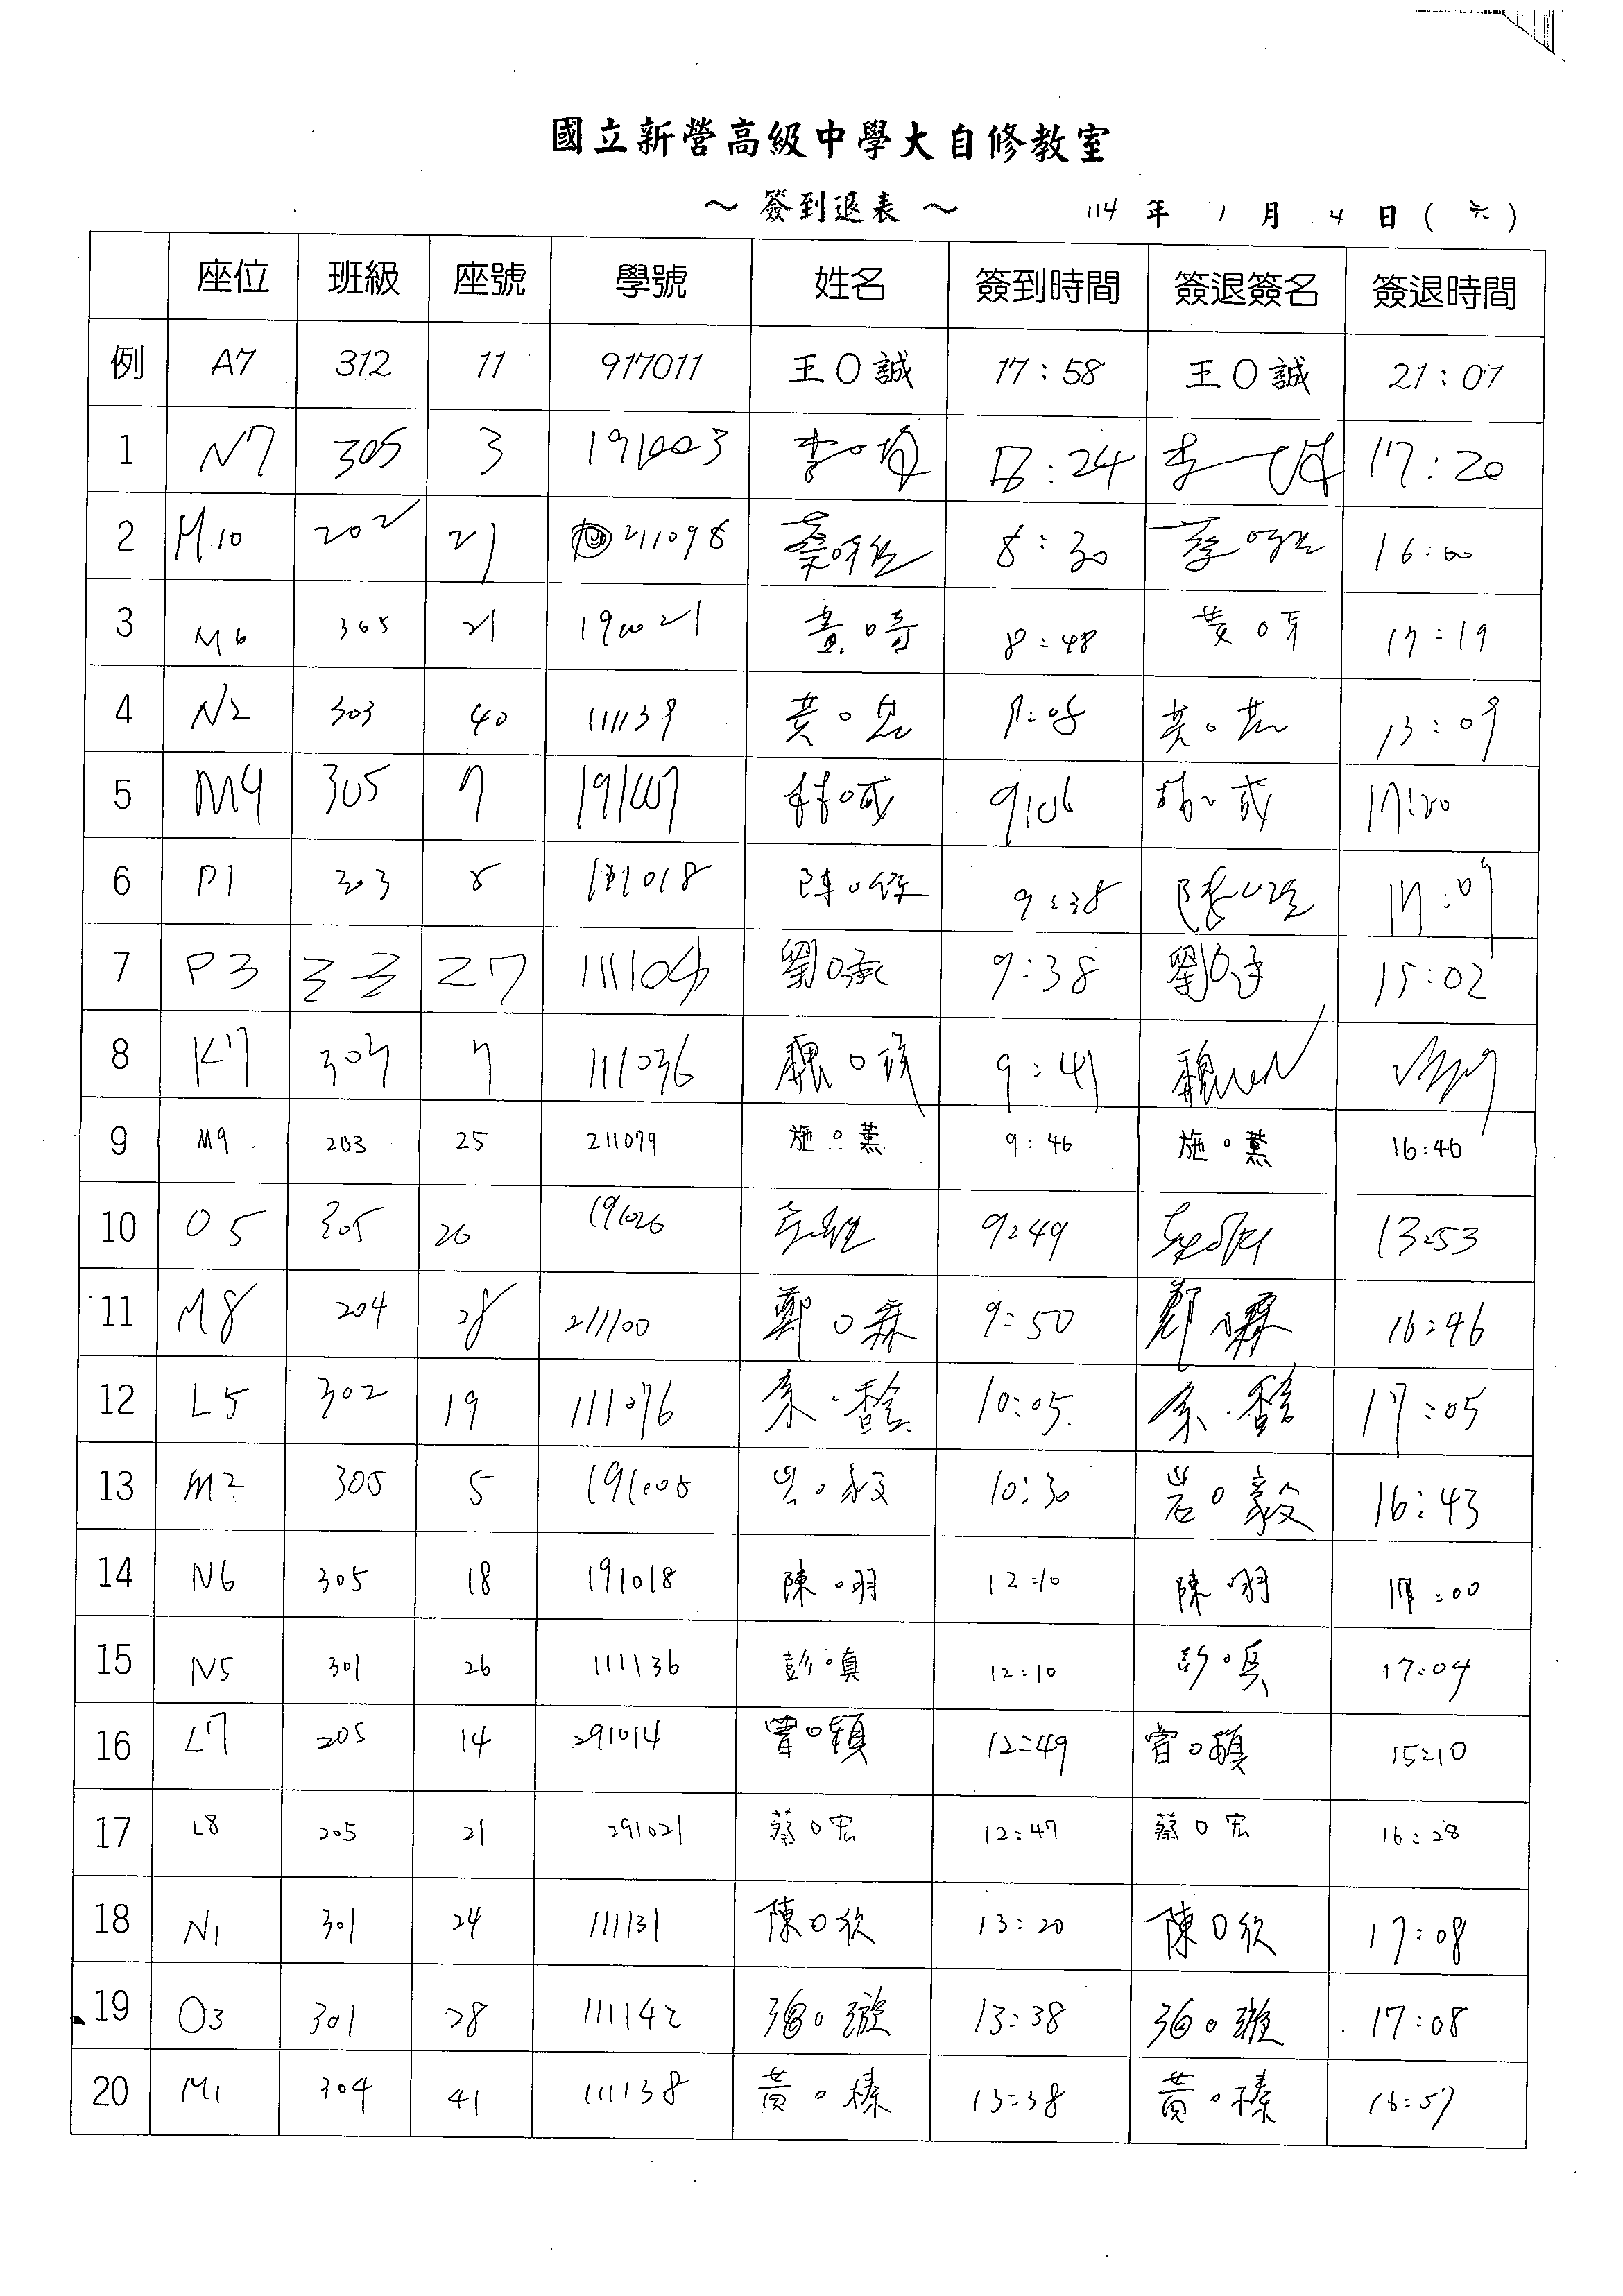 國立新營高級中學大自修教室
～ 簽到退表 ～ 114 年 1 月 4 日 ( 六 )
座位 班級 座號 學號 姓名 簽到時間 簽退簽名 簽退時間
例 A7 312 11 917011 王〇誠 17:58 王〇誠 21:07
1 N7 305 3 191003 李〇 :24 李 17:20
2 M10 202 21 211098 蔡〇 8:30 16:00
3 M6 305 21 191021 黃〇 8:48 黃〇 17:19
4 N2 303 40 111139 黃〇 9:08 黃〇 13:09
5 M4 305 7 191007 林〇 9:06 17:20
6 P1 303 8 018 陳〇 9:38 陳〇 17:09
7 P3 303 27 劉〇承 9:38 劉〇承 15:02
8 K7 303 7 111036 魏〇 9:41 魏
9 M9 203 25 211079 施〇薰 9:46 施〇薰 16:46
10 O5 305 26 191026 9:49 13:53
11 M8 204 28 211100 鄭〇霖 9:50 鄭〇霖 16:46
12 L5 302 19 111076 〇馨 10:05 〇馨 17:05
13 M2 305 5 191005 〇毅 10:30 〇毅 16:43
14 N6 305 18 191018 陳〇羽 12:10 陳〇羽 17:00
15 N5 301 26 111136 彭〇 12:10 彭〇 17:04
16 L7 205 14 291014 〇穎 12:49 〇穎 15:10
17 L8 205 21 291021 蔡〇宏 12:47 蔡〇宏 16:28
18 N1 301 24 111131 陳〇欣 13:20 陳〇欣 17:08
19 O3 301 28 111142 〇璇 13:38 〇璇 17:08
20 M1 304 41 111138 黃〇榛 13:38 黃〇榛 16:57